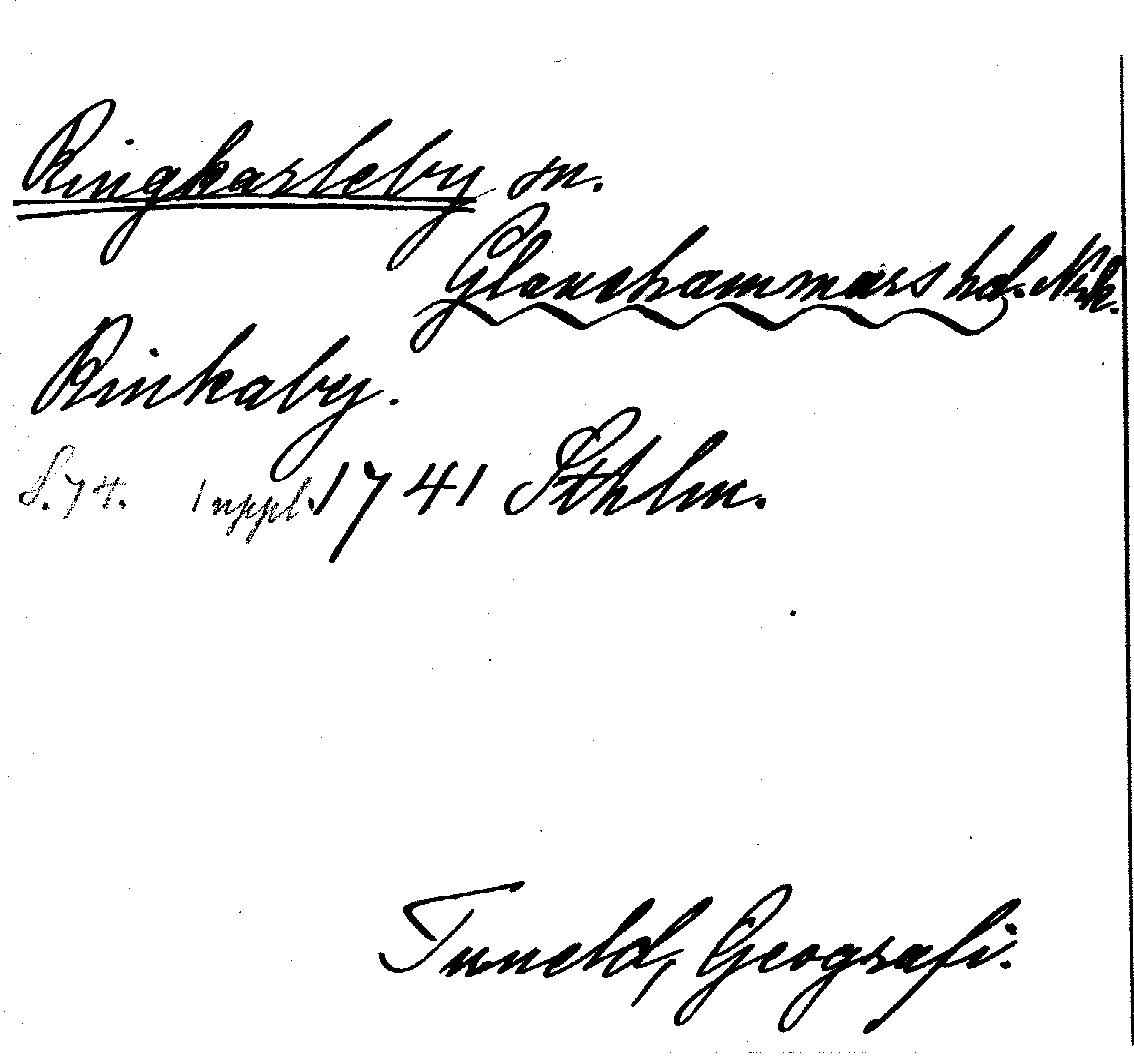 Ringkarleby sn.
Glanshammars hd. Närk.
Rinkaby.
S. 74. 1 uppl. 1741 Sthlm.
Tuneld, Geografi.